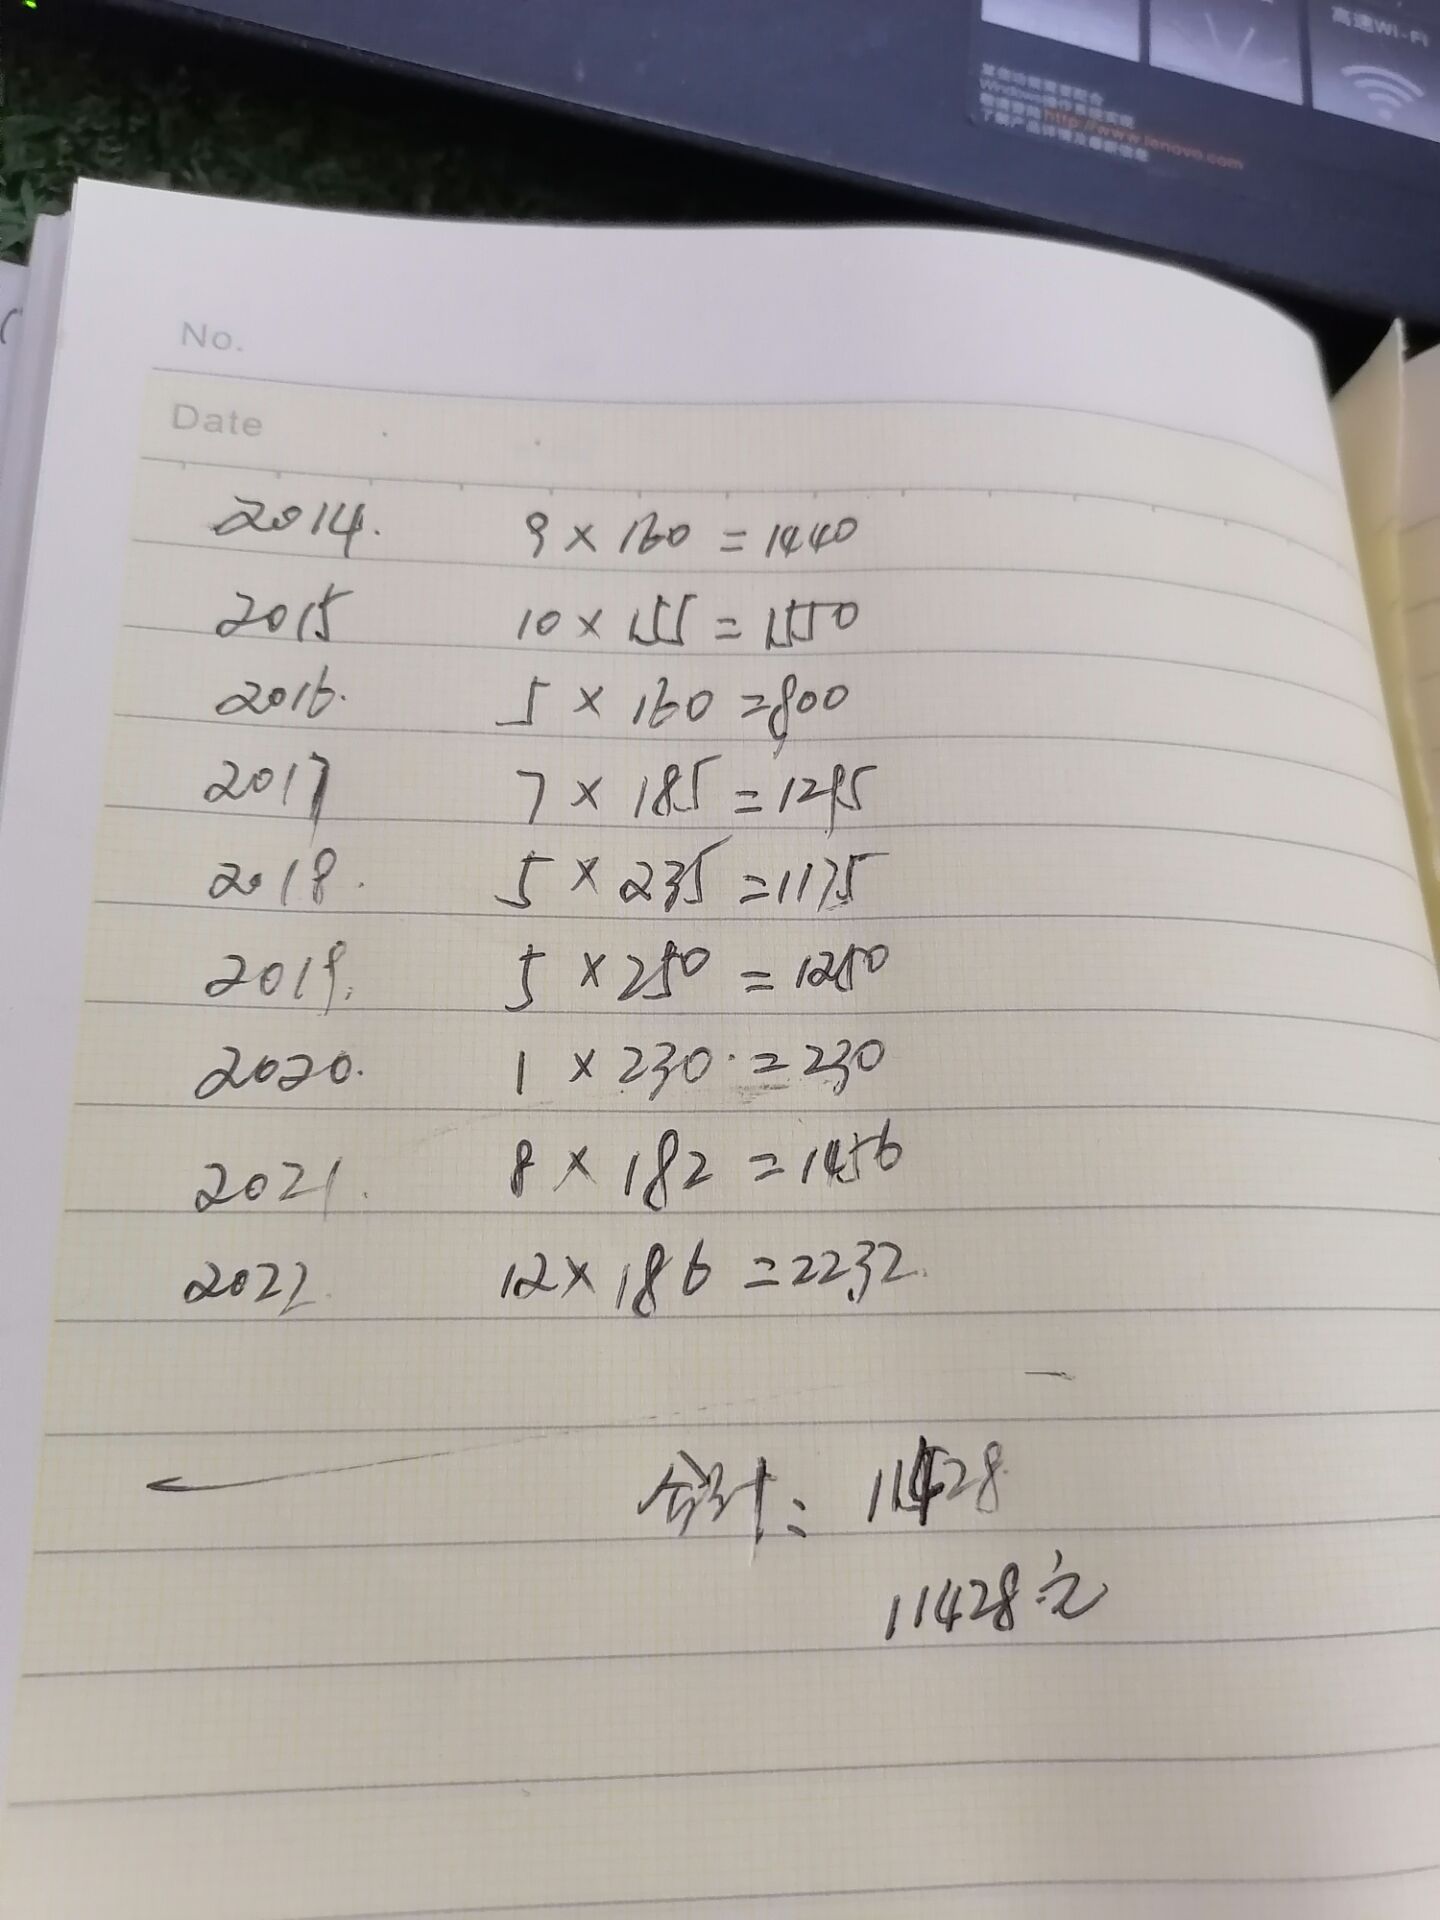 高速WI-FI
Windows操作系统实现
敬请咨询http://www.lenovo.com
了解产品详情及最新信息
No.
Date
2014. 9 × 160 = 1440
2015 10 × 155 = 1550
2016. 5 × 160 = 800
2017 7 × 185 = 1295
2018. 5 × 235 = 1175
2019. 5 × 250 = 1250
2020. 1 × 230 = 230
2021. 8 × 182 = 1456
2022 12 × 186 = 2232.
合计: 11428
11428元